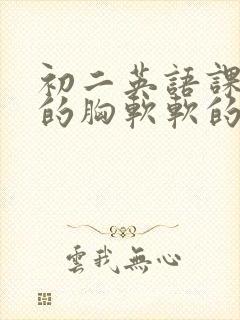 初二英語課
的胸軟軟的
雲我無心